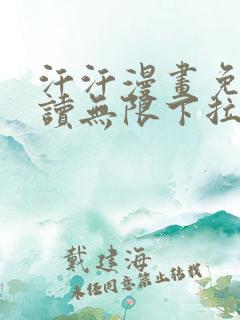 汗汗漫畫免
讀無限下拉
戴建海
未经同意禁止转载